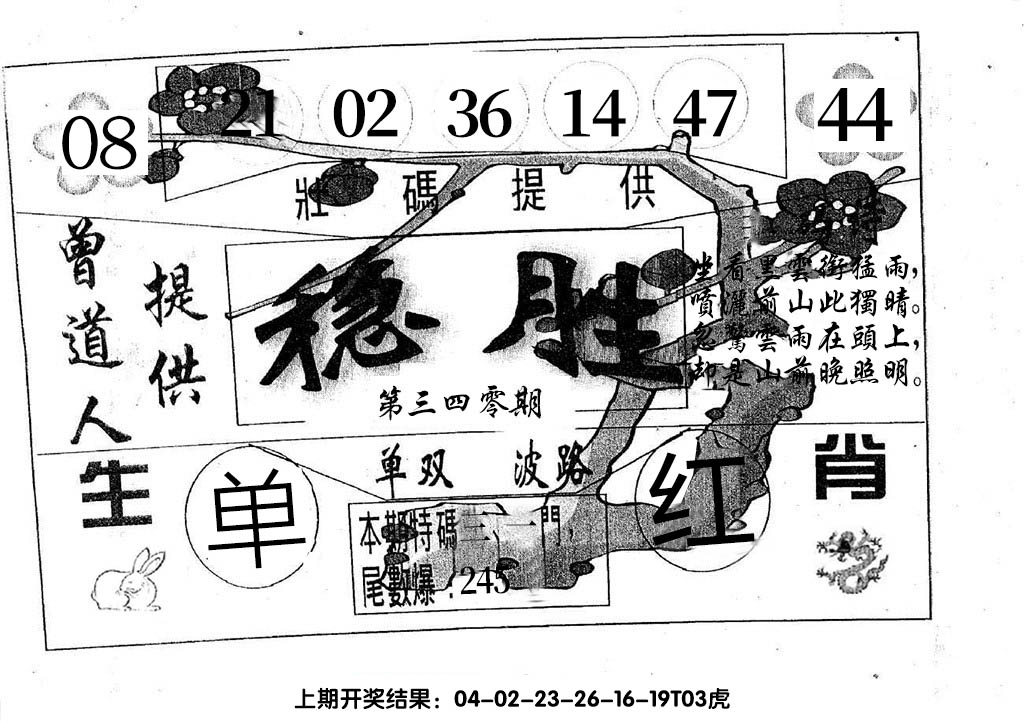 08 21 02 36 14 47 44
壯碼提供
特
曾道人
提供
稳胜
第三四零期
坐看黑雲銜猛雨,
噴灑前山此獨晴。
忽驚雲雨在頭上,
却是山前晚照明。
单双 波路
生肖
单
红
本期特碼三、一門,
尾數爆:245
上期开奖结果：04-02-23-26-16-19T03虎